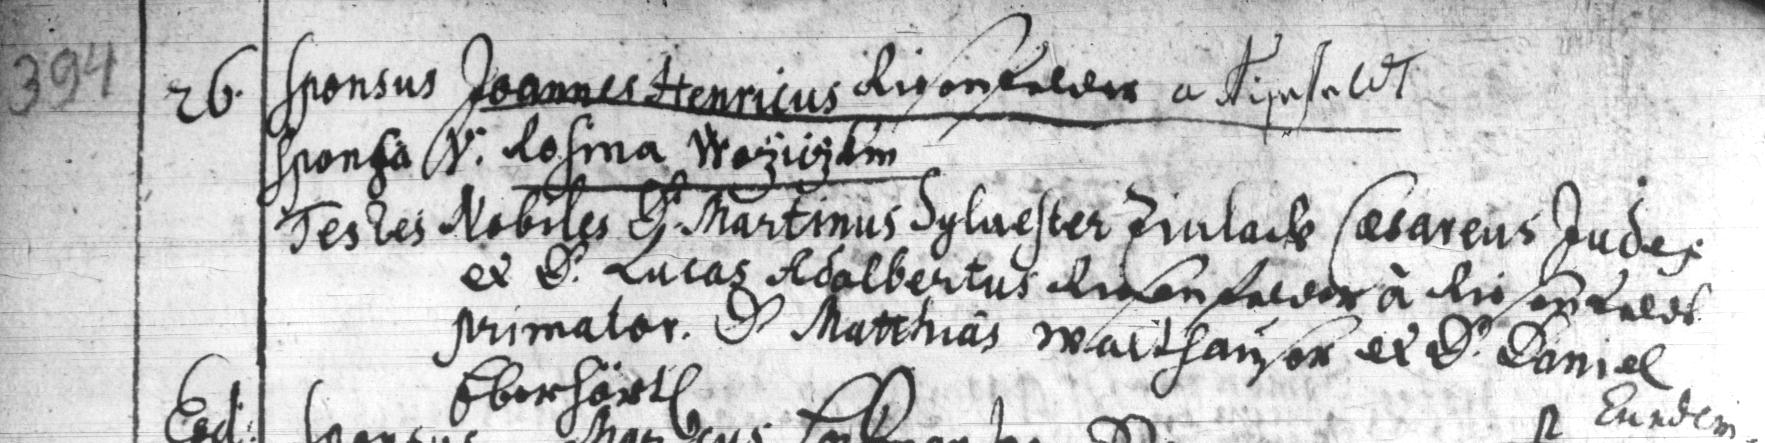 394
26. Sponsus Joannes Henricus Risenfelder a Risenfeldt
Sponsa V. Rosina
Testes Nobiles D. Martinus Sylvester Zinlack Caesareus Judex
et D. Lucas Adalbertus Risenfelder à Risenfeldt
primator. D. Matthias Waithauser et D. Daniel
Eberhörtl
Eod. Sponsus
Eundem